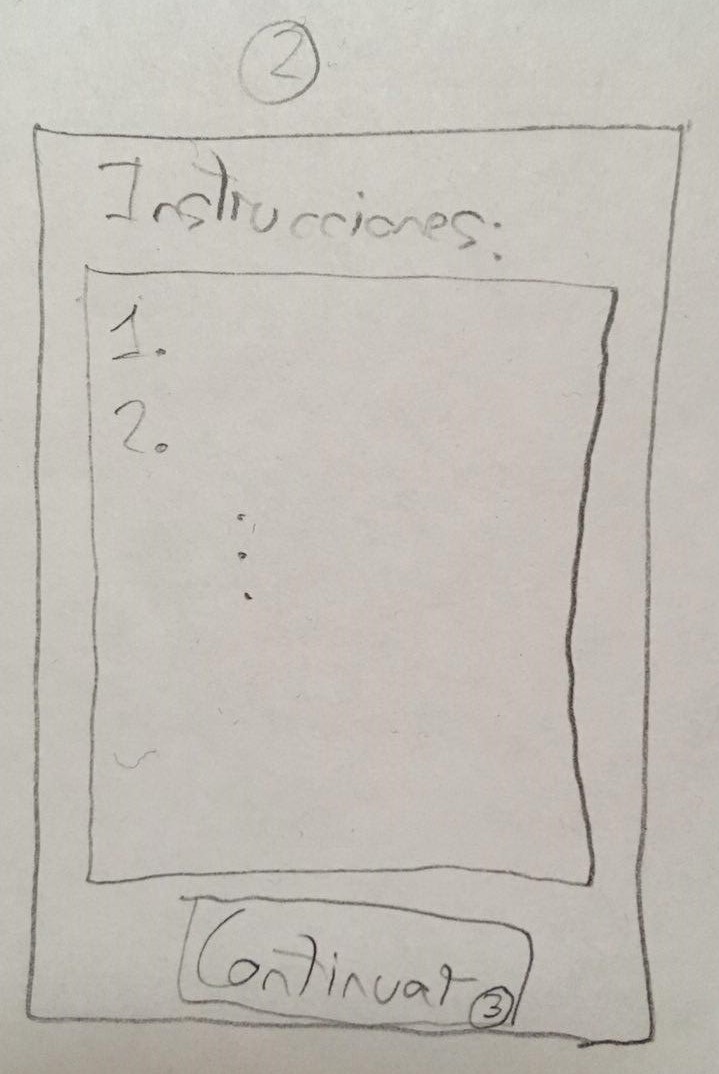 2
Instrucciones:
1.
2.
⋮
Continuar 3